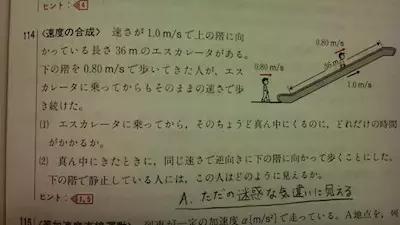 ヒント：④
114 〈速度の合成〉 速さが1.0m/sで上の階に向
かっている長さ36mのエスカレータがある。
下の階を0.80m/sで歩いてきた人が、エス
カレータに乗ってからもそのままの速さで歩
き続けた。
0.80 m/s
0.80 m/s
36m
1.0m/s
(1) エスカレータに乗ってから、そのちょうど真ん中にくるのに、どれだけの時間
がかかるか。
(2) 真ん中にきたときに、同じ速さで逆向きに下の階に向かって歩くことにした。
下の階で静止している人には、この人はどのように見えるか。
ヒント：
A. ただの迷惑な気違いに見える
一定の加速度α[m/s²]で走っている。A地点を、